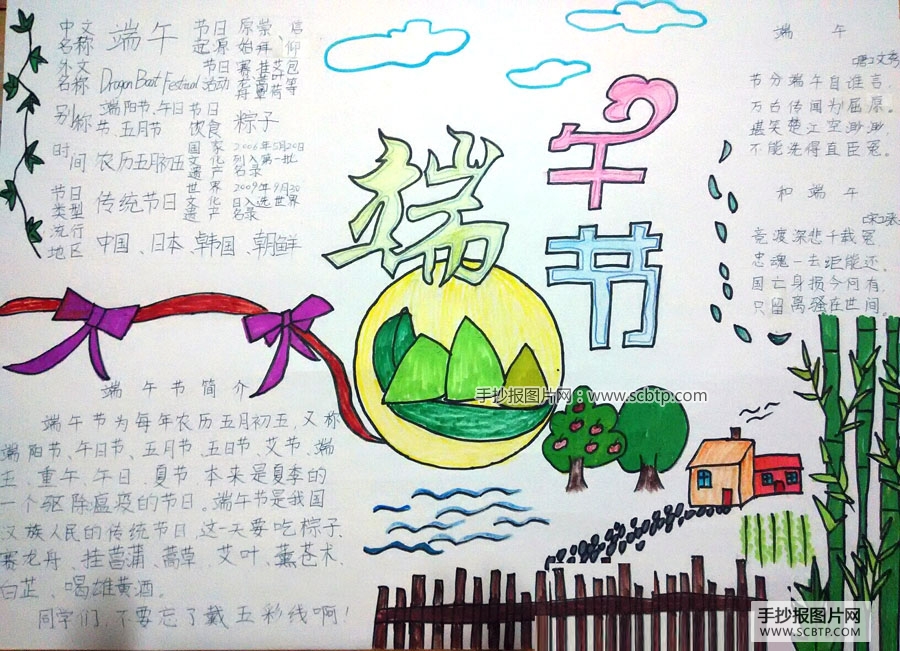 中文名称 端午 节日起源 原始崇拜、信仰
外文名称 Dragon Boat Festival 节日活动
别称 端阳节、午日节、五月节 节日饮食 粽子
时间 农历五月初五 国家文化遗产 2006年5月20日列入第一批名录
节日类型 传统节日 世界文化遗产 2009年9月30日入选世界名录
流行地区 中国、日本、韩国、朝鲜
端午节
端午节简介
端午节为每年农历五月初五,又称
端阳节、午日节、五月节、五日节、艾节、端
五、重午、午日、夏节 本来是夏季的
一个驱除瘟疫的节日。端午节是我国
汉族人民的传统节日,这一天要吃粽子、
赛龙舟、挂菖蒲、蒿草、艾叶、薰苍术、
白芷、喝雄黄酒。
同学们,不要忘了戴五彩线啊!
端 午
节分端午自谁言,
万古传闻为屈原。
堪笑楚江空渺渺,
不能洗得直臣冤。
和端午
竞渡深悲千载冤
忠魂一去讵能还。
国亡身损今何有,
只留离骚在世间。
手抄报图片网:www.scbtp.com
手抄报图片网
WWW.SCBTP.COM